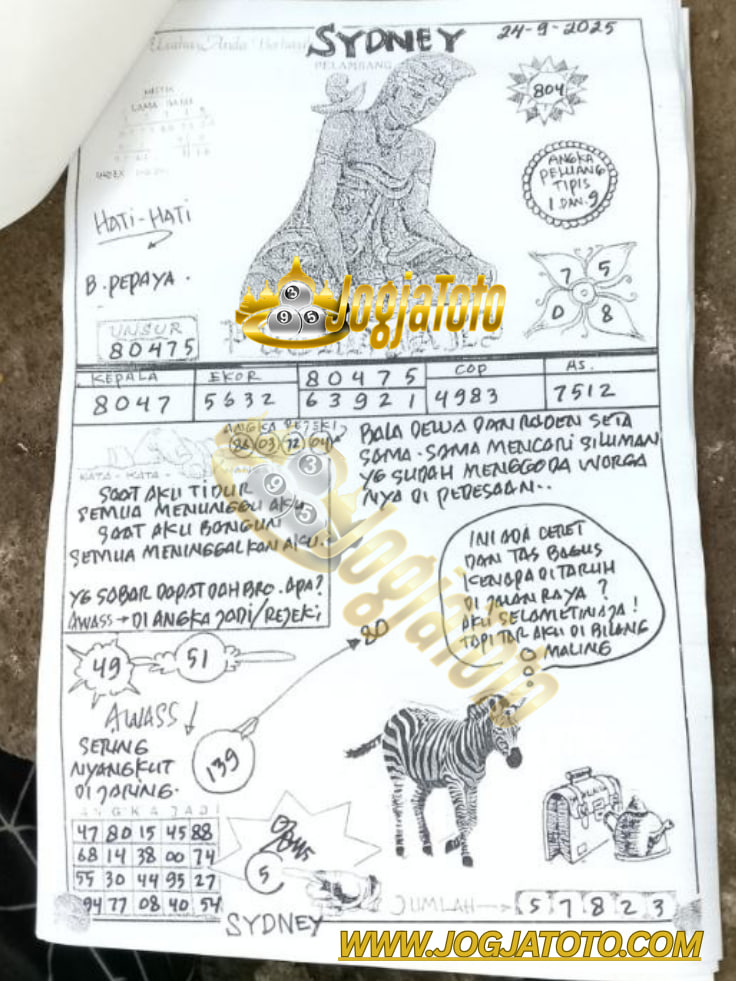 SYDNEY
24-9-2025
PELAMBANG
804
ANGKA
PELUANG
TIPIS
1 DAN 9
LAMA
INDEX
HATI-HATI
B. PEPAYA.
7 5
0 8
UNSUR
80475
JogjaToto
3
9 5
KEPALA
EKOR
80475
COP
AS.
8047
5632
63921
4983
7512
ANGKA REJEKI
03 72 04
KATA-KATA
SAAT AKU TIDUR
SEMUA MENUNGGU AKU
SAAT AKU BANGUN
SEMUA MENINGGALKAN AKU.
YG SABAR DAPAT DAH BRO. APA?
AWASS → DI ANGKA JADI/REJEKI
BALA DEWA DAN RADEN SETA
SAMA-SAMA MENCARI SILUMAN
YG SUDAH MENGGODA WARGA
NYA DI PEDESAAN..
INI ADA CERET
DAN TAS BAGUS
KENAPA DITARUH
DI JALAN RAYA ?
AKU SELAMETIN AJA !
TAPI TAR AKU DI BILANG
MALING
3
9 5
JogjaToto
80
49
51
AWASS
139
SERING
NYANGKUT
DI JARING.
ANGKA JADI
47 80 15 45 88
68 14 38 00 74
55 30 44 95 27
94 77 08 40 54
5
SYDNEY
JUMLAH
5 7 8 2 3
WWW.JOGJATOTO.COM